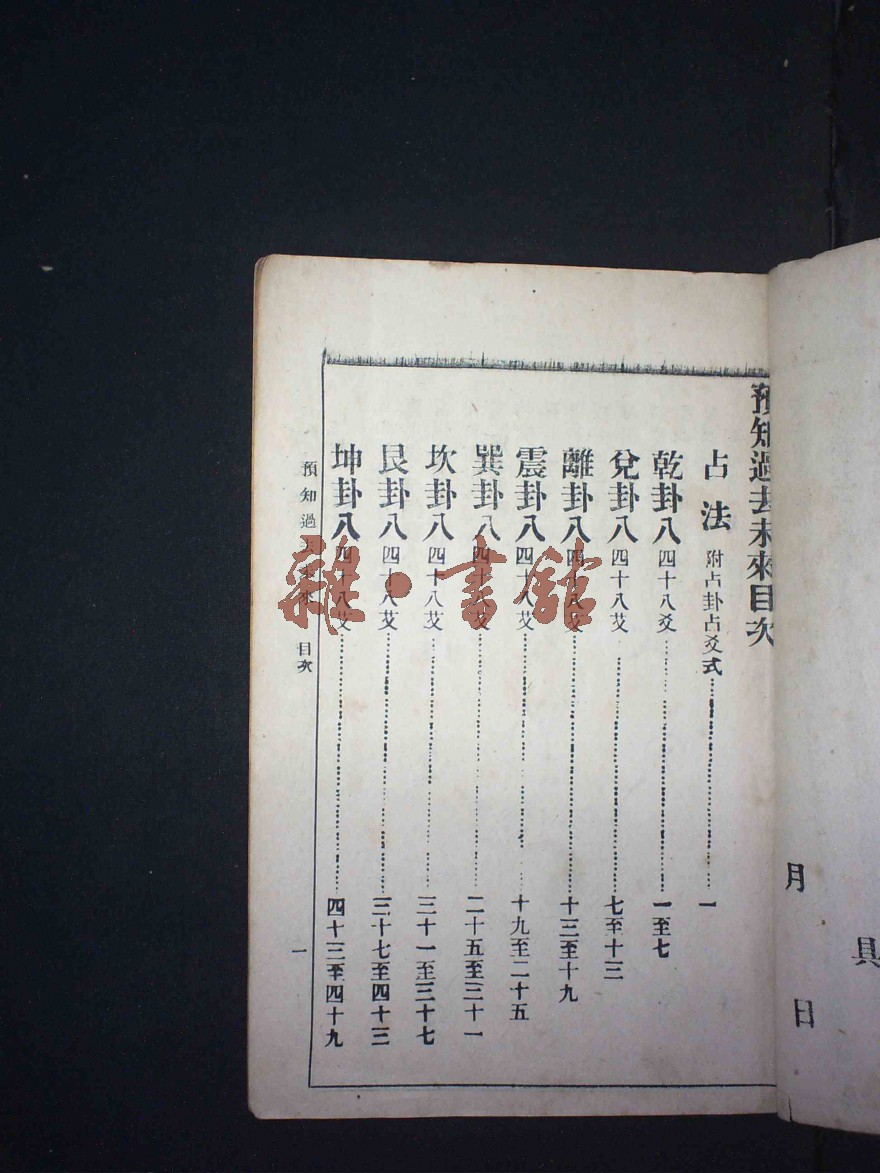 具
月 日
預知過去未來目次
占法 附占卦占爻式 一
乾卦八 四十八爻 一至七
兌卦八 四十八艾 七至十三
離卦八 四十八艾 十三至十九
震卦八 四十八艾 十九至二十五
巽卦八 四十八艾 二十五至三十一
坎卦八 四十八艾 三十一至三十七
艮卦八 四十八艾 三十七至四十三
坤卦八 四十八艾 四十三至四十九
預知過去未來 目次 一
雜·書館